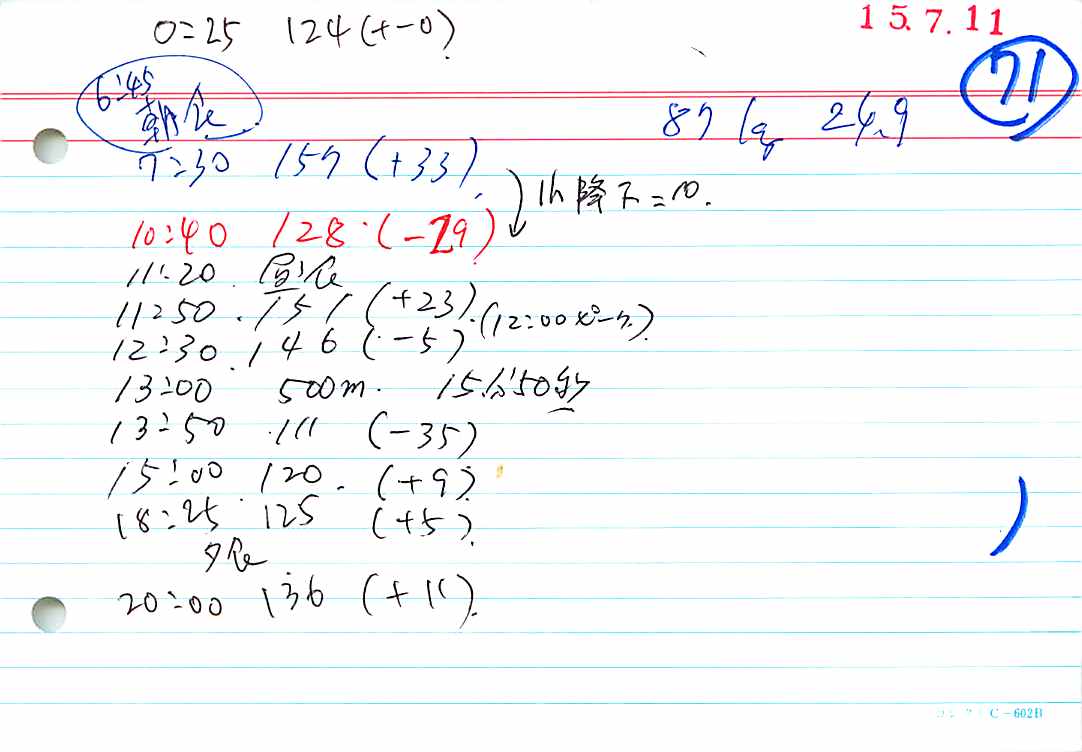 15.7.11
0:25 124 (+-0)
71
6:45
朝食
87 kg 24.9
7:30 157 (+33)
1h降下=10.
10:40 128 (-29)
11:20 昼食
11:50 151 (+23) (12:00 ピーク)
12:30 146 (-5)
13:00 500m. 15分50秒
13:50 111 (-35)
15:00 120. (+9)
18:25 125 (+5)
夕食
20:00 136 (+11)
C-602B